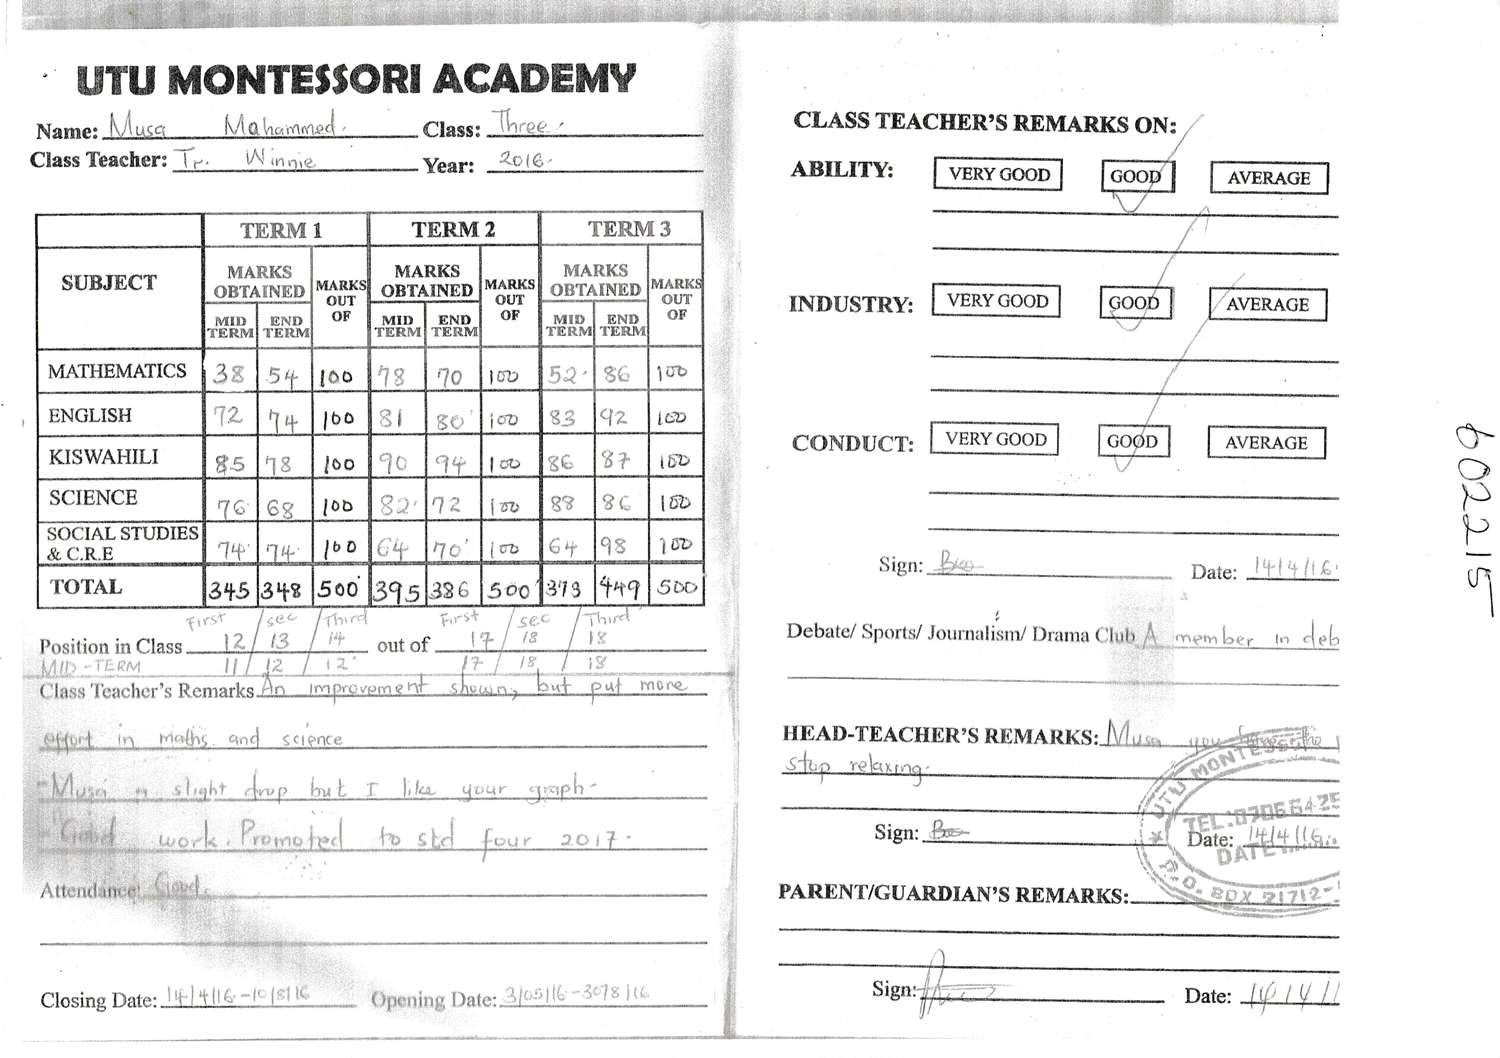 UTU MONTESSORI ACADEMY
Name: Musa Mahammed. Class: Three.
Class Teacher: Tr. Winnie Year: 2016.
TERM 1 TERM 2 TERM 3
SUBJECT MARKS OBTAINED MARKS OUT OF MARKS OBTAINED MARKS OUT OF MARKS OBTAINED MARKS OUT OF
MID TERM END TERM MID TERM END TERM MID TERM END TERM
MATHEMATICS 38 54 100 78 70 100 52 86 100
ENGLISH 72 74 100 81 80 100 83 92 100
KISWAHILI 85 78 100 90 94 100 86 87 100
SCIENCE 76 68 100 82 72 100 88 86 100
SOCIAL STUDIES & C.R.E 74 74 100 64 70 100 64 98 100
TOTAL 345 348 500 395 386 500 373 449 500
First / sec / Third First / sec / Third
Position in Class 12 / 13 / 14 out of 17 / 18 / 18
MID-TERM 11 / 12 / 12 17 / 18 / 18
Class Teacher's Remarks An improvement shown, but put more
effort in maths and science
- Musa a slight drop but I like your graph-
- Good work. Promoted to std four 2017.
Attendance: Good.
Closing Date: 14/4/16-10/8/16 Opening Date: 3/05/16-30/8/16
CLASS TEACHER'S REMARKS ON:
ABILITY: VERY GOOD GOOD AVERAGE
INDUSTRY: VERY GOOD GOOD AVERAGE
CONDUCT: VERY GOOD GOOD AVERAGE
Sign: Date: 14/4/16.
Debate/ Sports/ Journalism/ Drama Club A member in deb
HEAD-TEACHER'S REMARKS: Musa you
stop relaxing.
Sign: Date: 14/4/16
UTU MONTESS
TEL:0706 6425
DATE
P.O. BOX 21712-
PARENT/GUARDIAN'S REMARKS:
Sign: Date: 14/4/1
602215